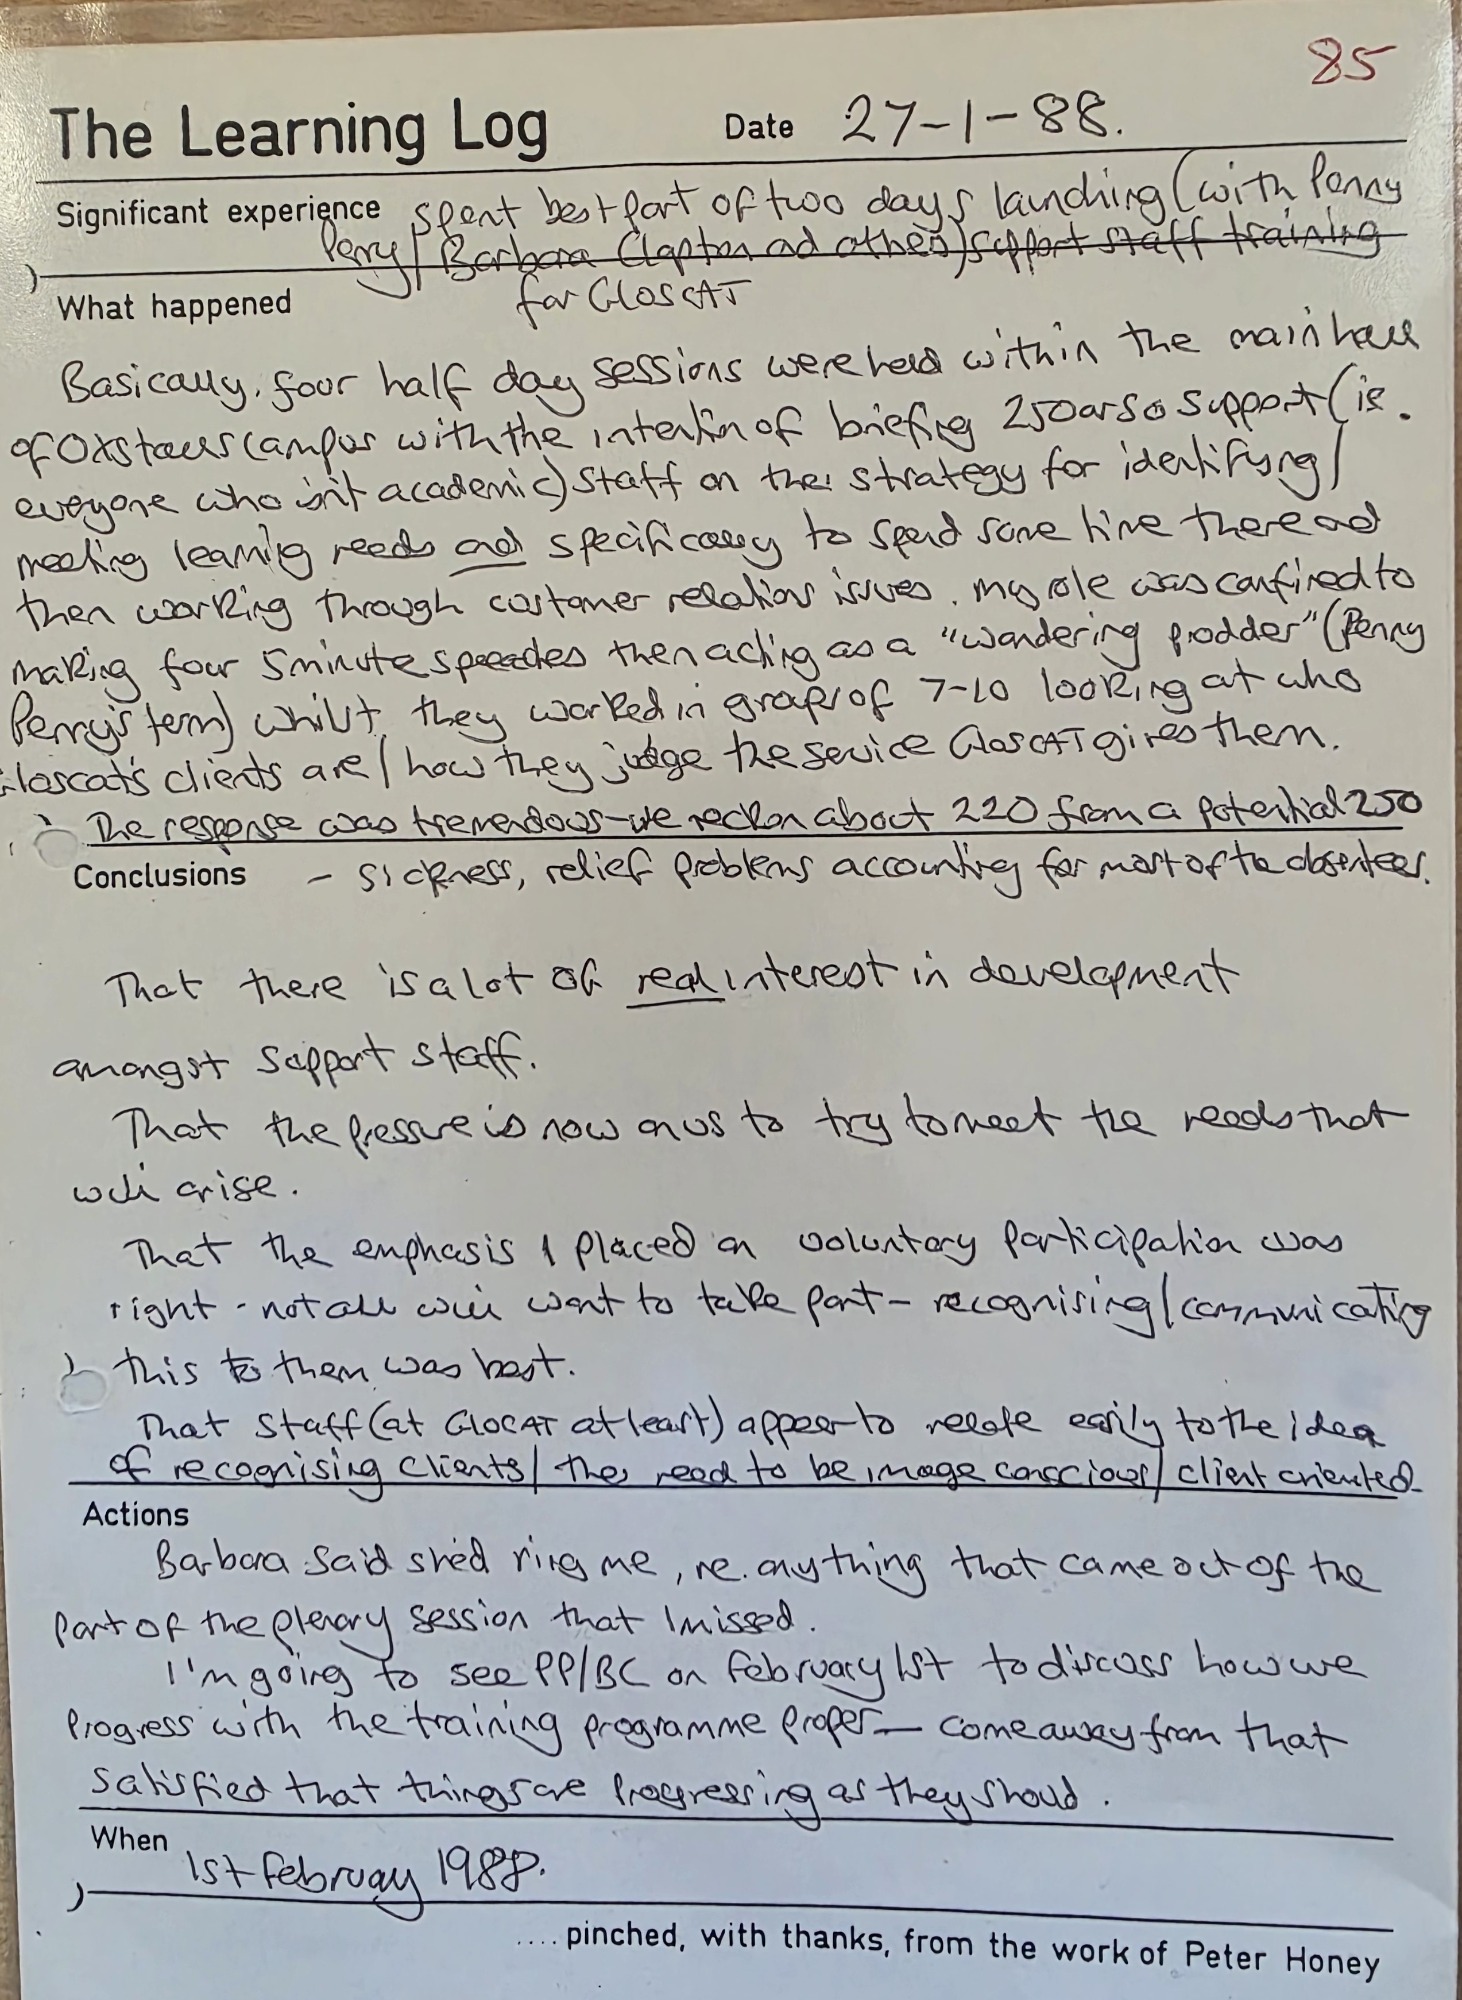 85
The Learning Log Date 27-1-88.
Significant experience spent best part of two days launching (with Penny
Perry/Barbara Clapton and others) support staff training
for GlosCAT
What happened
Basically, four half day sessions were held within the main hall
of Oxstalls campus with the intention of briefing 250 or so support (ie.
everyone who isn't academic) staff on the strategy for identifying/
meeting learning needs and specifically to spend some time there and
then working through customer relations issues. My role was confined to
making four 5 minute speeches then acting as a "wandering prodder" (Penny
Perry's term) whilst they worked in groups of 7-10 looking at who
Gloscat's clients are/how they judge the service GlosCAT gives them.
The response was tremendous - we reckon about 220 from a potential 250
Conclusions - sickness, relief problems accounting for most of the absentees.
That there is a lot of real interest in development
amongst support staff.
That the pressure is now on us to try to meet the needs that
will arise.
That the emphasis I placed on voluntary participation was
right - not all will want to take part - recognising/communicating
this to them was best.
That staff (at GloCAT at least) appear to relate easily to the idea
of recognising clients/the need to be image conscious/client oriented.
Actions
Barbara said she'd ring me, re. anything that came out of the
part of the plenary session that I missed.
I'm going to see PP/BC on February 1st to discuss how we
progress with the training programme proper - come away from that
satisfied that things are progressing as they should.
When 1st February 1988.
.... pinched, with thanks, from the work of Peter Honey